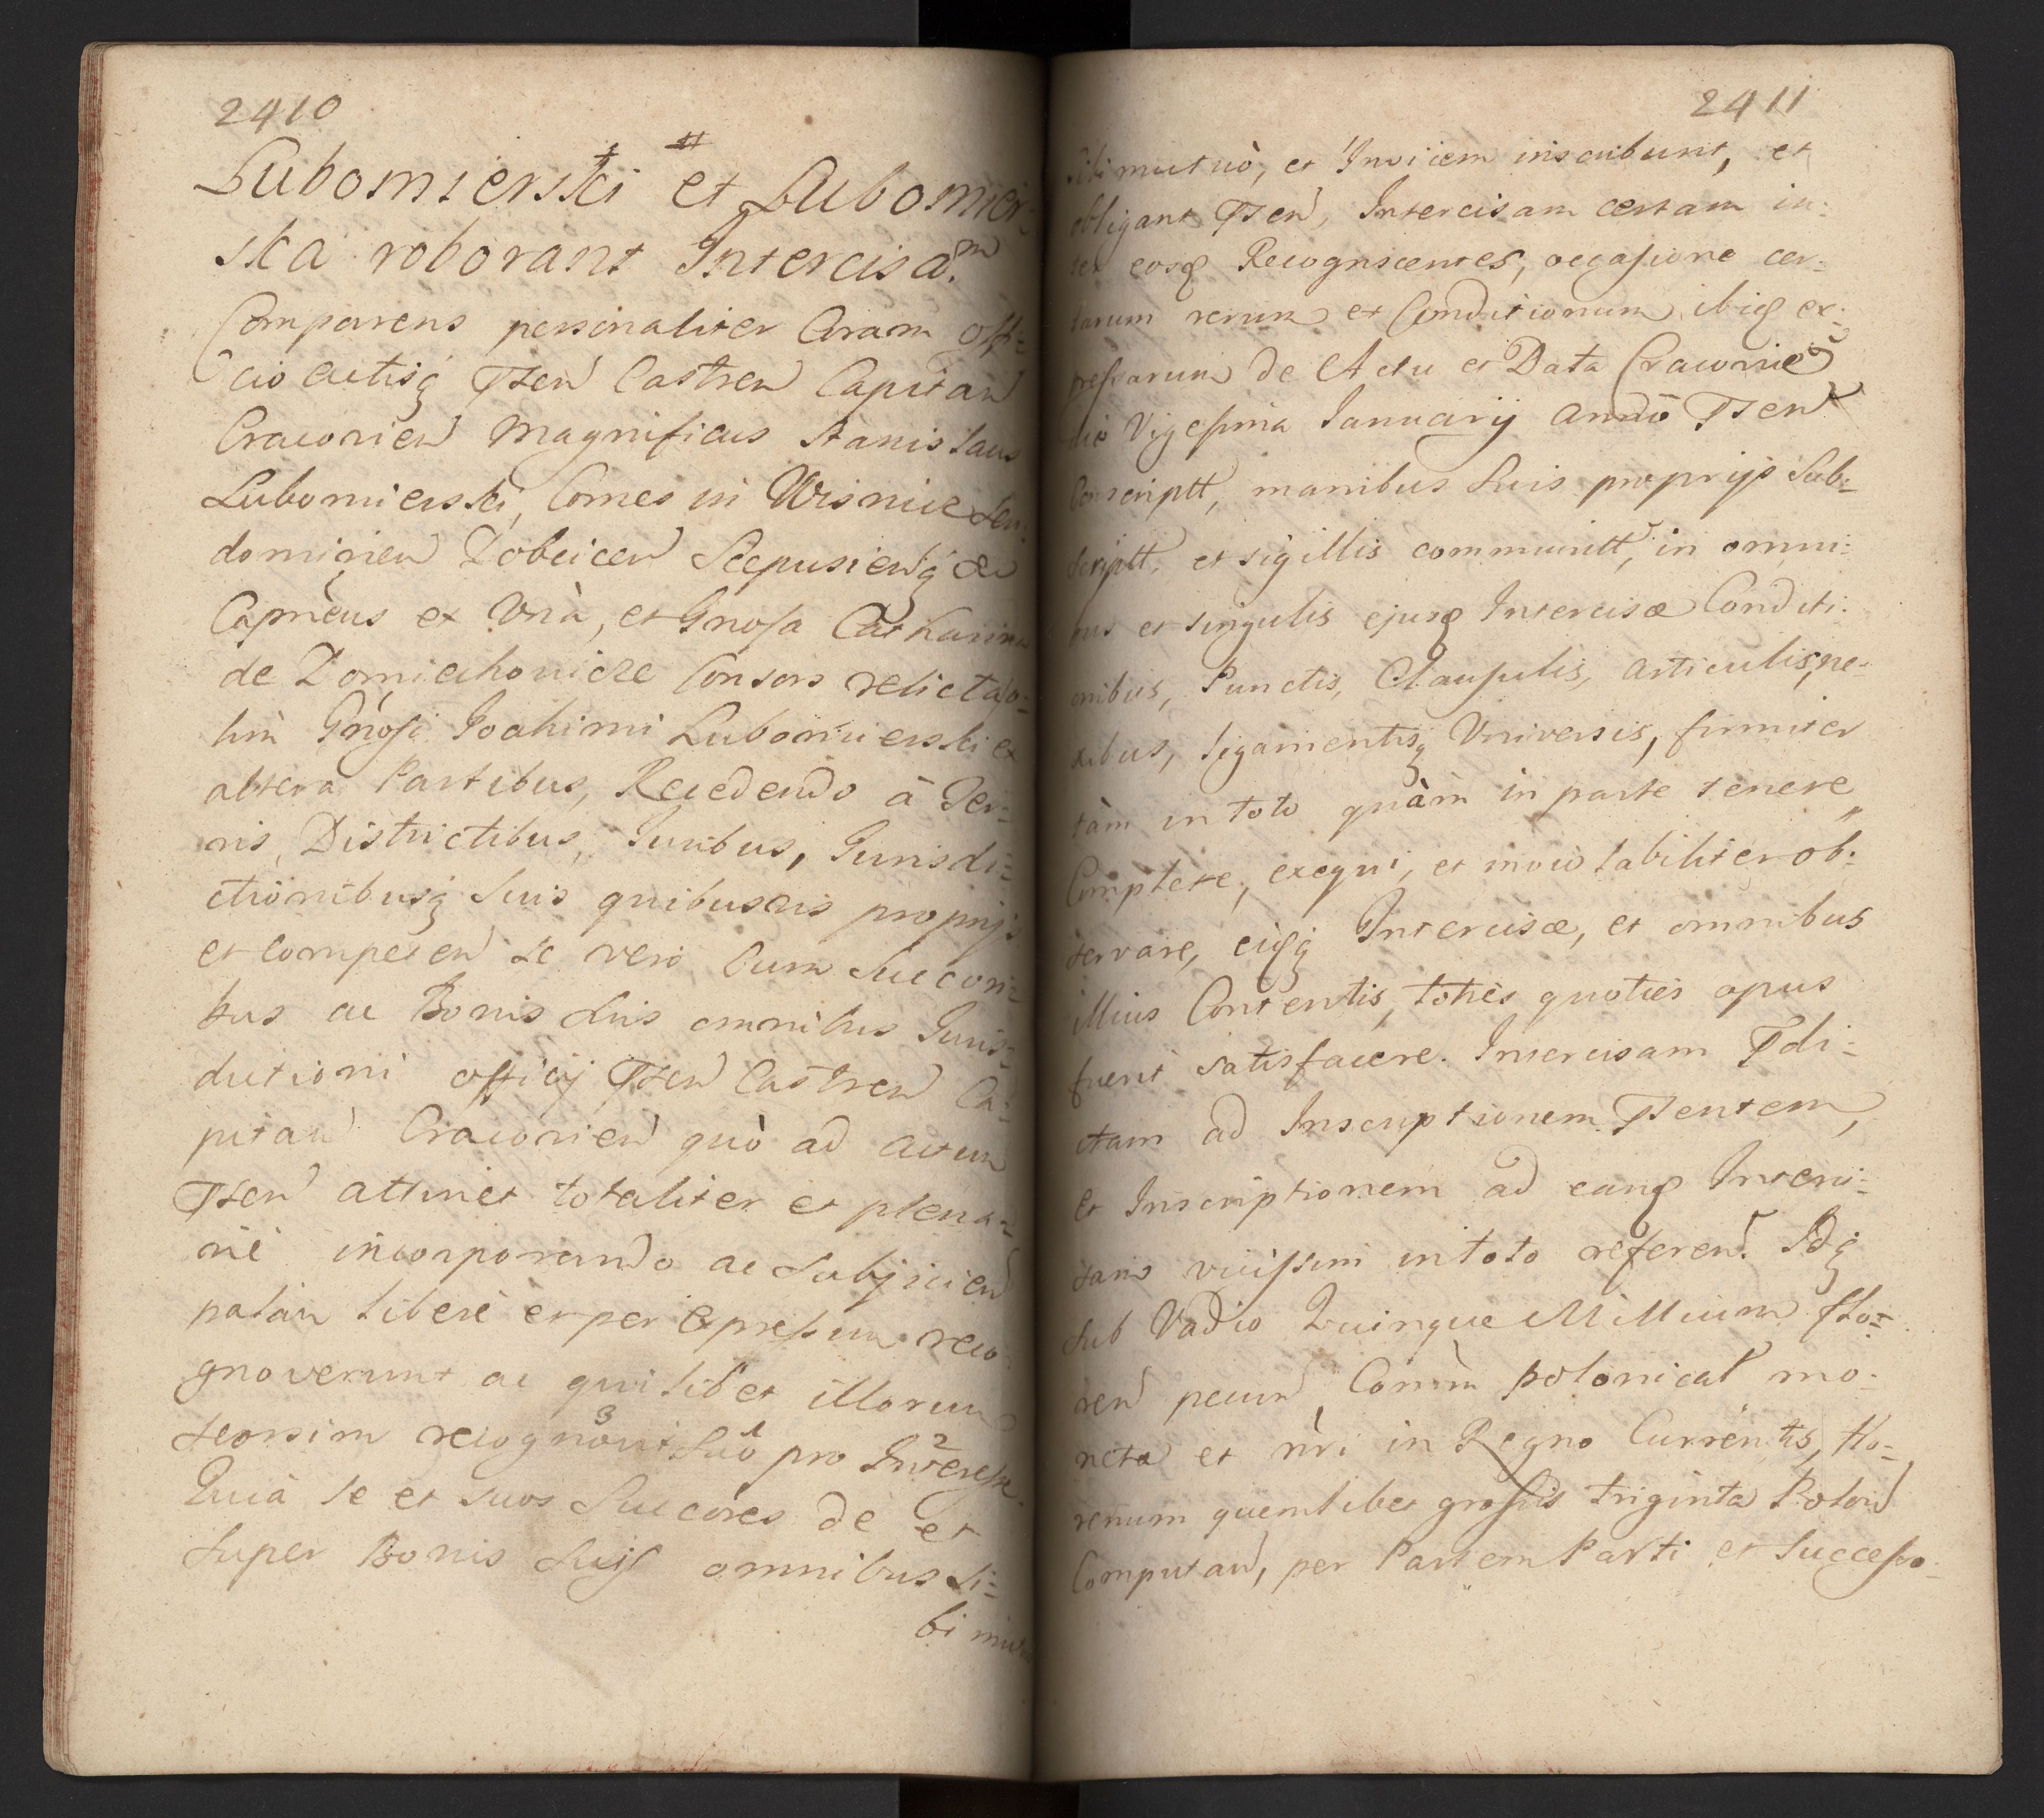 2410
Lubomierski et Lubomier-
ska roborant Intercisam
Comparens personaliter Coram Offi=
cio Actisq Pnsen Castren Capitan
Cracovien Magnificus Stanislaus
Lubomierski, Comes in Wisnicz Sen-
domirien Dobcicen Scepusienq &c
Capneus ex Vna, et Gnosa Catharina
de Domiechowicze Consors relicta o-
lim Gnosi Joahimi Lubomierski ex
altera Partibus, Recedendo à Ter=
ris, Districtibus, Juribus, Jurisdi=
ctionibusq Suis quibusvis proprijs
et competen se vero Cum Succori=
bus ac Bonis Suis omnibus Juris=
dictioni officij Pnsen Castren Ca=
pitan Cracovien quò ad actum
Pnsen attinet totaliter et plena=
riè incorporando ac Subijcien
palàm liberè et per Expressum reco-
gnoverunt ac quilibet illorum
seorsim recognovit Suo pro Interesse
3 1 2
Quià se et suos Succores de et
Super Bonis Suis omnibus Si=
bi mu
2411
sibi mutuò, et Invicem inscribunt, et
obligant Pnsen, Intercisam certam in=
ter eosq Recognscentes, occasione cer=
tarum rerum et Conditionum ibiq ex=
pressarum de Actu et Data Cracoviae
die Vigesima Januarij Anno Pnsen
Conscriptt, manibus Suis proprijs Sub=
scriptt, et sigillis communitt, in omni=
bus et singulis ejusq Intercisæ Conditi=
onibus, Punctis, Clausulis, Articulis, ne-
xibus, ligamentisq Vniversis, firmiter
tàm in toto quàm in parte tenere
Complere, exequi, et inviolabiliter ob=
servare, eisq Intercisæ, et omnibus
illius Contentis, totiès quotiès opus
fuerit satisfacere. Intercisam Pdi=
ctam ad Inscriptionem Pnsentem,
et Inscriptionem ad eanq Interci=
sam vicissim in toto referen. Idq
Sub Vadio Quinque Millium flo=
ren pecun Comm polonical mo-
neta et nri in Regno Currentis, flo-
renum quemlibet grossis triginta Polon
Computan, per Partem Parti et Successo-